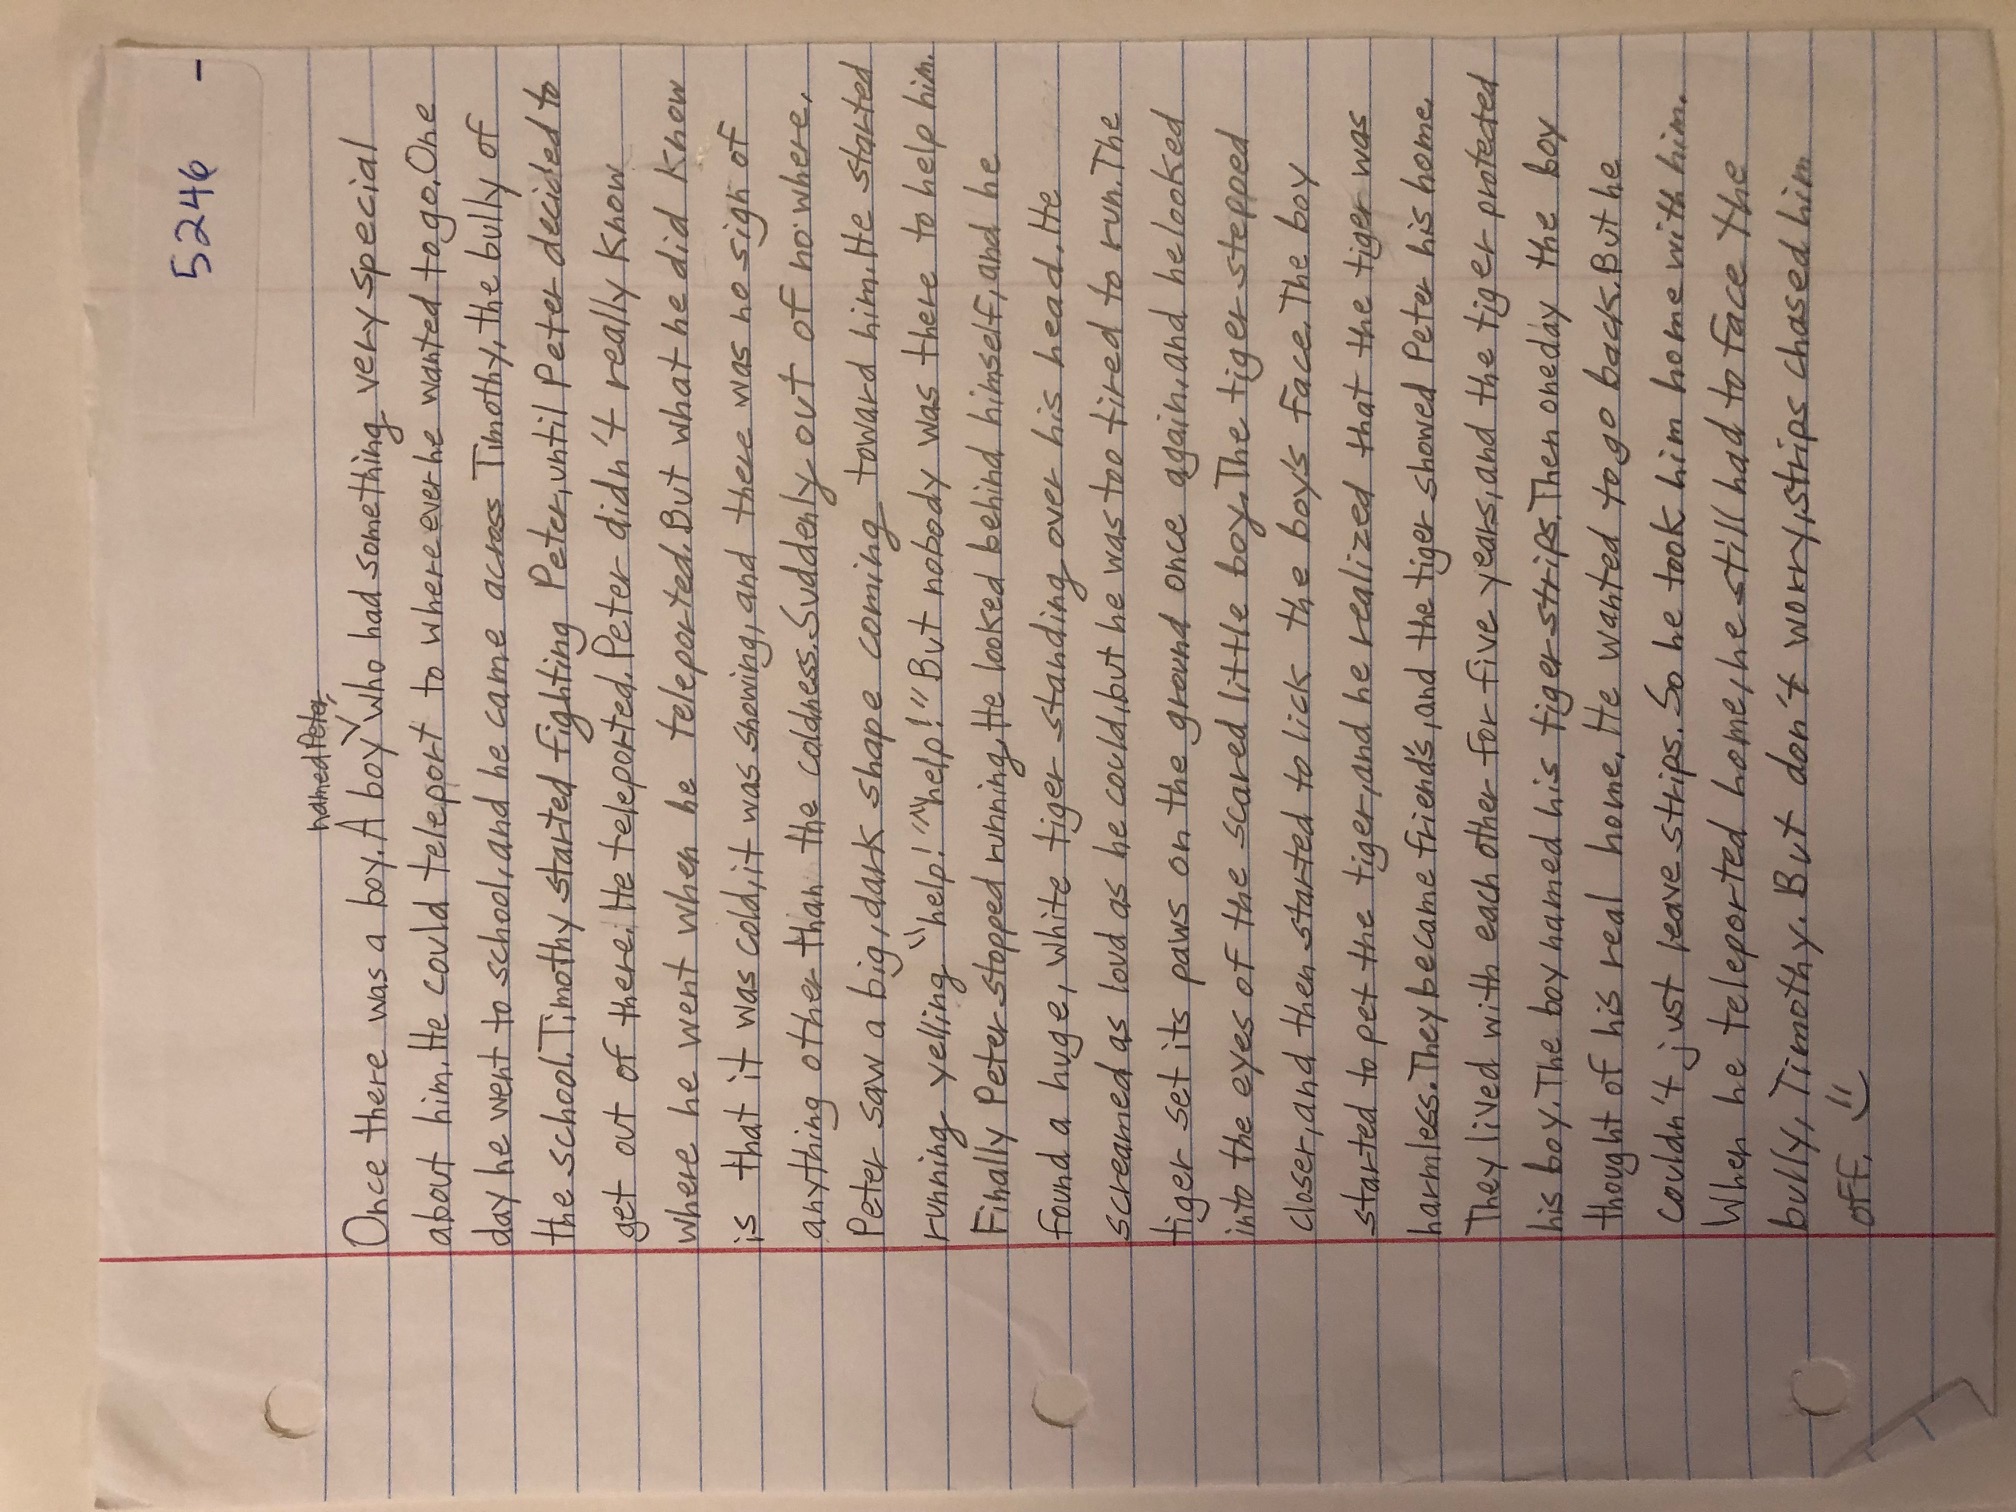 5246 -
named Peter,
Once there was a boy. A boy who had something very special
about him. He could teleport to where ever he wanted to go. One
day he went to school, and he came across Timothy, the bully of
the school. Timothy started fighting Peter, until Peter decided to
get out of there. He teleported. Peter didn't really know
where he went when he teleported. But what he did know
is that it was cold, it was snowing, and there was no sign of
anything other than the coldness. Suddenly out of no where,
Peter saw a big, dark shape coming toward him. He started
running yelling "help!" "help!" But nobody was there to help him.
Finally Peter stopped running. He looked behind himself, and he
found a huge, white tiger standing over his head. He
screamed as loud as he could, but he was too tired to run. The
tiger set its paws on the ground once again, and he looked
into the eyes of the scared little boy. The tiger stepped
closer, and then started to lick the boy's face. The boy
started to pet the tiger, and he realized that the tiger was
harmless. They became friend's, and the tiger showed Peter his home.
They lived with each other for five years, and the tiger protected
his boy. The boy named his tiger strips. Then one day the boy
thought of his real home. He wanted to go back. But he
couldn't just leave strips. So he took him home with him.
When he teleported home, he still had to face the
bully, Timothy. But don't worry, strips chased him
off.